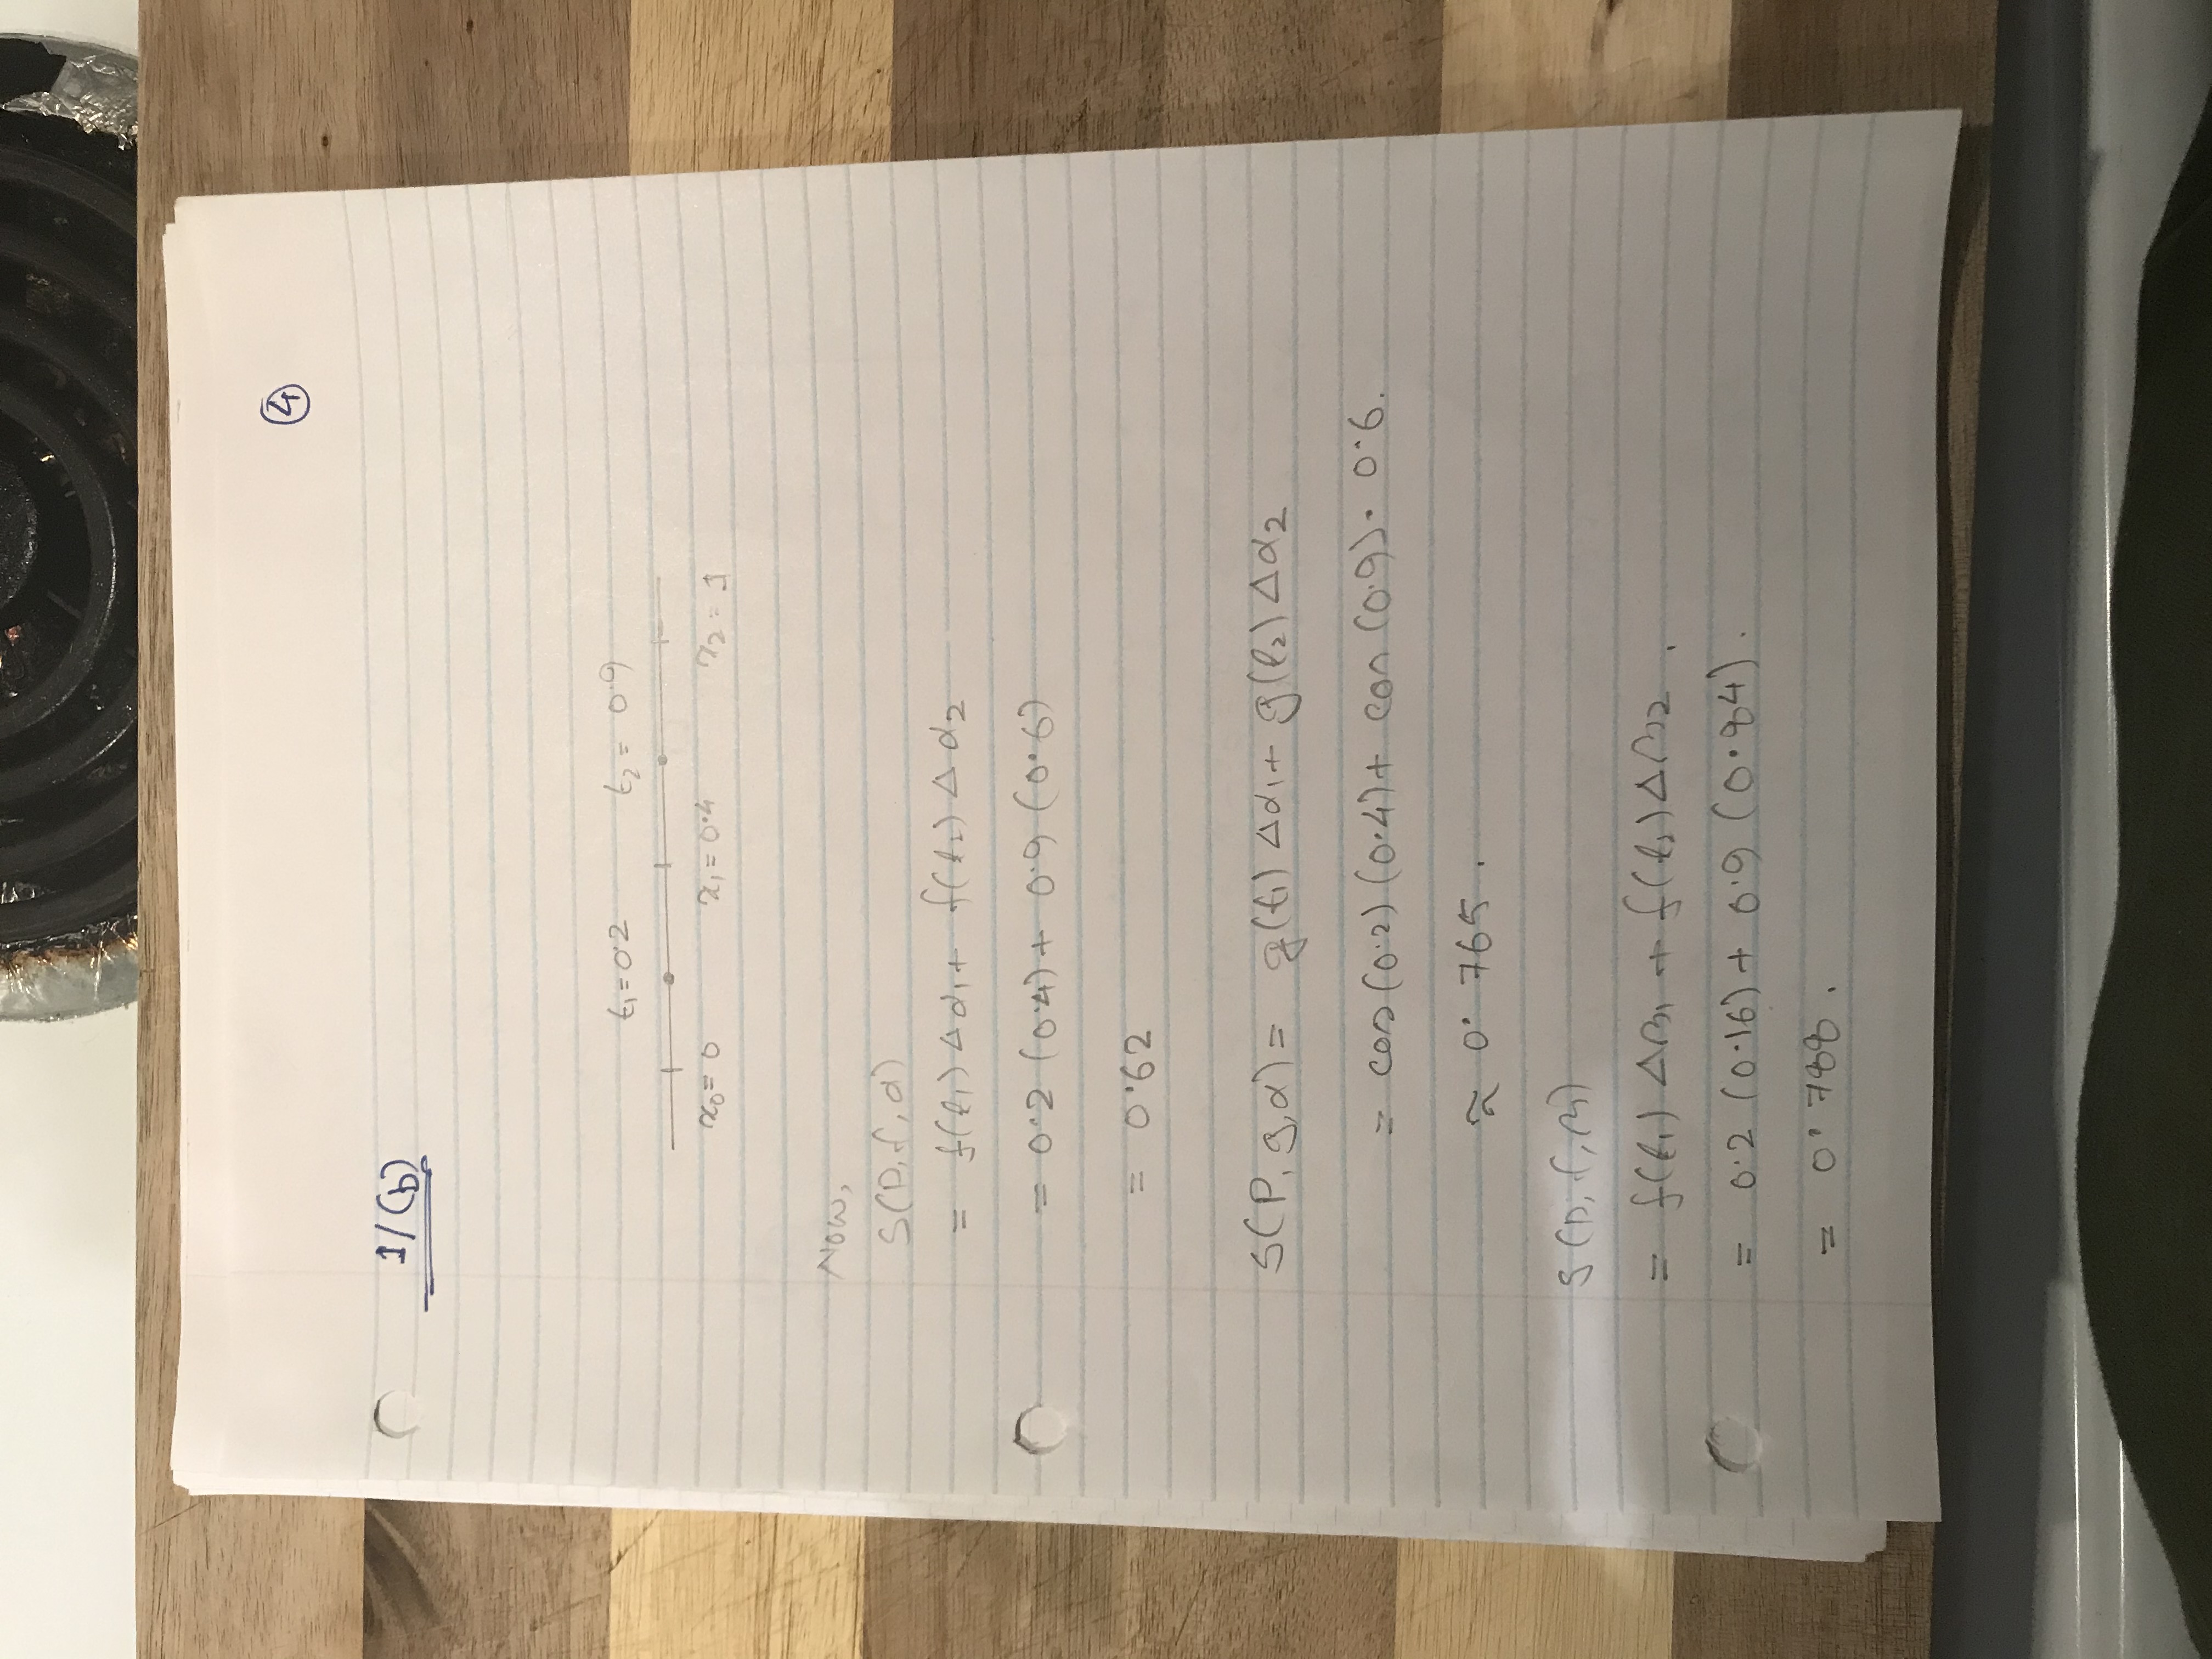 ④
1/(b)
t₁=0.2 t₂= 0.9
x₀= 0 x₁= 0.4 x₂= 1
Now,
S(P,f,α)
= f(t₁) Δα₁+ f(t₂) Δα₂
= 0.2 (0.4)+ 0.9 (0.6)
= 0.62
S(P,g,α)= g(t₁) Δα₁+ g(t₂) Δα₂
= cos(0.2)(0.4)+ cos(0.9). 0.6.
≈ 0.765.
S(P,f,β)
= f(t₁) Δβ₁ + f(t₂)Δβ₂.
= 0.2 (0.16)+ 0.9 (0.84).
= 0.788.